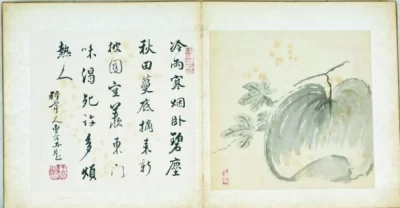 冷雨寒烟卧碧塵
秋田蔓底摘来新
披圖空羨東門
味渴死許多煩
熱人
種芹人曹霑并題